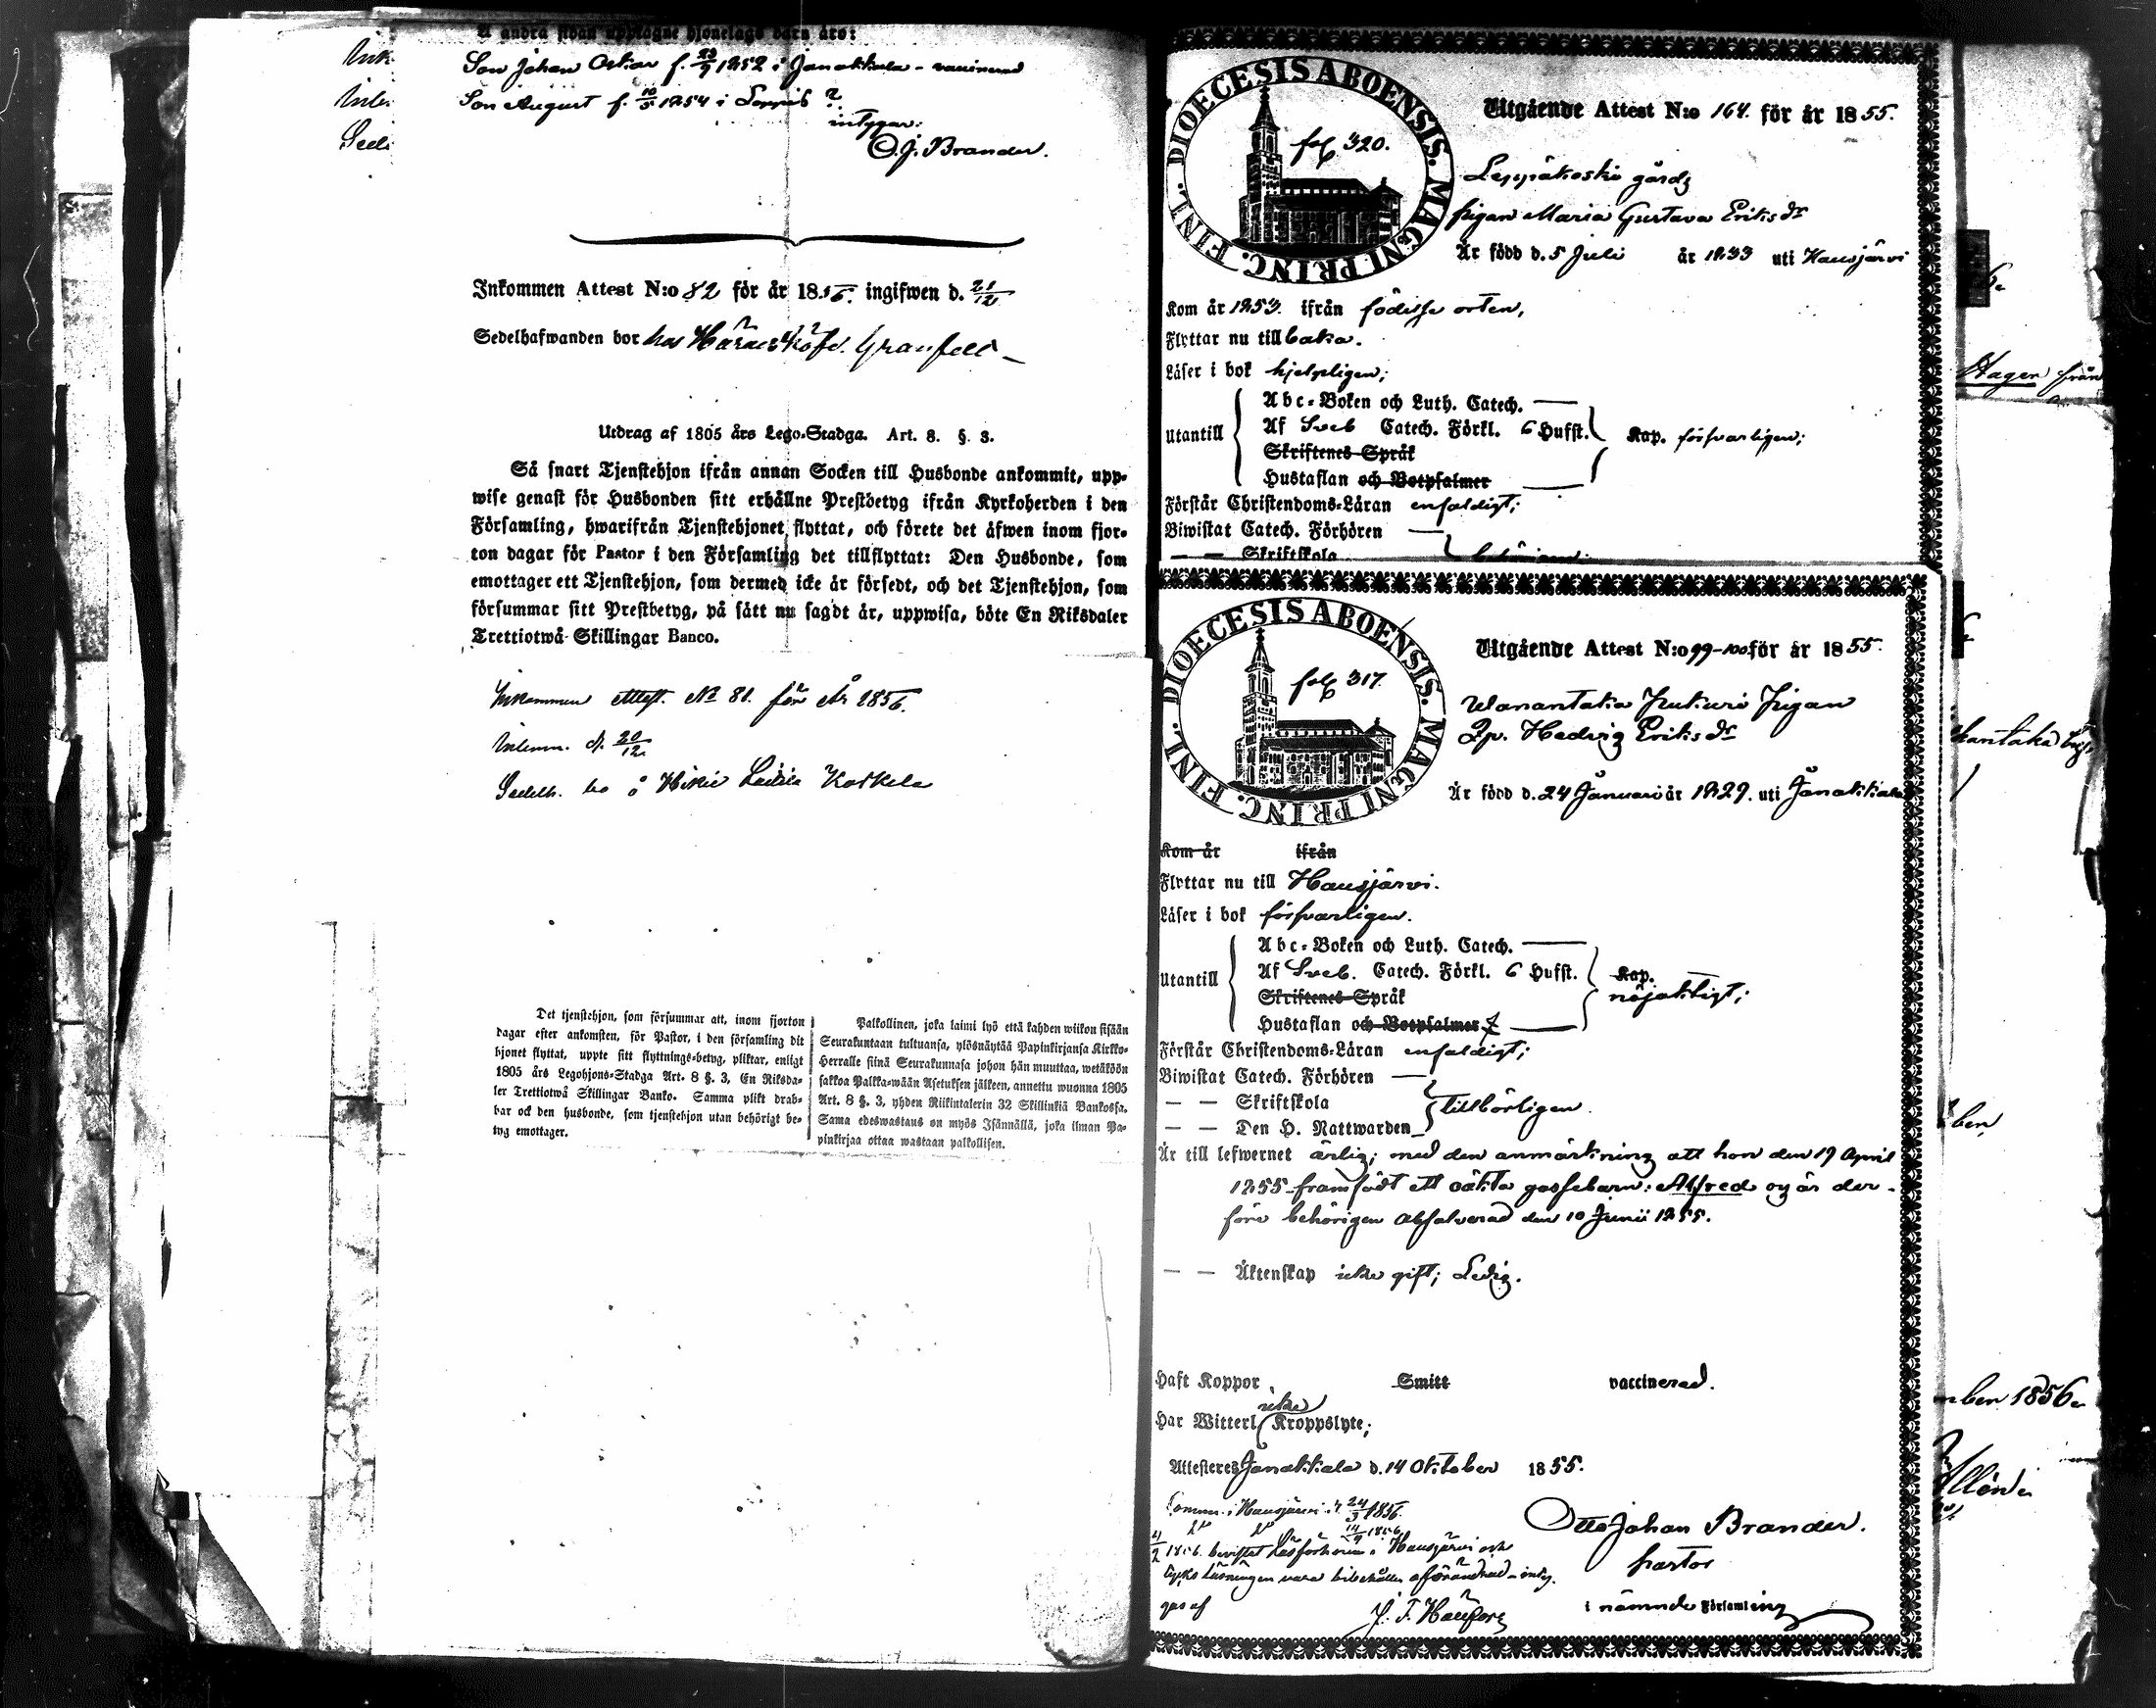 Å andra sidan upptagne hjonelags barn äro:
Son Johan Oskar f. 29/9 1852 i Janakkala - vaccinerad
Son August f. 10/5 1854 i Loppis ?
intygar:
O. J. Brander.
Inkommen Attest N:o 82 för år 1856. ingifwen d. 21/12
Sedelhafwanden bor hos Häradshöfd. Granfelt
Utdrag af 1805 års Lego-Stadga. Art. 8. §. 3.
Så snart Tjenstehjon ifrån annan Socken till Husbonde ankommit, upp-
wise genast för Husbonden sitt erhållne Prestbetyg ifrån Kyrkoherden i den
Församling, hwarifrån Tjenstehjonet flyttat, och förete det äfwen inom fjor-
ton dagar för Pastor i den Församling det tillflyttat: Den Husbonde, som
emottager ett Tjenstehjon, som dermed icke är försedt, och det Tjenstehjon, som
försummar sitt Prestbetyg, på sätt nu sagdt är, uppwisa, böte En Riksdaler
Trettiotwå Skillingar Banco.
Inkommen Attest. No 81. för År 1856.
Inlemn. d. 20/12
Sedelh. bo å Hikiä Koskela
Det tjenstehjon, som försummar att, inom fjorton
dagar efter ankomsten, för Pastor, i den församling dit
hjonet flyttat, uppte sitt flyttnings-betyg, pliktar, enligt
1805 års Legohjons-Stadga Art. 8 §. 3, En Riksda-
ler Trettiotwå Skillingar Banko. Samma plikt drab-
bar ock den husbonde, som tjenstehjon utan behörigt be-
tyg emottager.
Palkollinen, joka laimi lyö että kahden wiikon sisään
Seurakuntaan tultuansa, ylösnäytää Papinkirjansa Kirkko-
Herralle siinä Seurakunnasa johon hän muuttaa, wetäköön
sakkoa Palkka-wään Asetuksen jälkeen, annettu wuonna 1805
Art. 8 §. 3, yhden Riikintalerin 32 Skillinkiä Bankossa.
Sama edeswastaus on myös Isännällä, joka ilman Pa-
pinkirjaa ottaa wastaan palkollisen.
DIOECESIS ABOENSIS. MAGNI PRINC. FINL.
fol 320.
Utgående Attest N:o 164. för år 1855.
Leppäkoski gårds
pigan Maria Gustava Eriksdr
Är född d. 5 Juli år 1833 uti Hausjärvi
Kom år 1853. ifrån födelse orten,
Flyttar nu tillbaka.
Läser i bok hjelpligen;
Utantill
Abc-Boken och Luth. Catech.
Af Sveb Catech. Förkl. 6 Hufst.
Kap. försvarligen;
Skriftenes Språk
Hustaflan och Botpsalmer
Förstår Christendoms-Läran enfaldigt;
Biwistat Catech. Förhören
— — Skriftskola
DIOECESIS ABOENSIS. MAGNI PRINC. FINL.
fol 317.
Utgående Attest N:o 99-100 för år 1855.
Wanantaka Kukuri Pigan
Qp. Hedvig Eriksdr
Är född d. 24 Januari år 1829. uti Janakkala
Kom år ifrån
Flyttar nu till Hausjärvi.
Läser i bok försvarligen.
Utantill
Abc-Boken och Luth. Catech.
Af Sveb. Catech. Förkl. 6 Hufst.
Kap.
nöjaktigt;
Skriftenes Språk
Hustaflan och Botpsalmer
Förstår Christendoms-Läran enfaldigt;
Biwistat Catech. Förhören
— — Skriftskola
tillbörligen.
— — Den H. Nattwarden
Är till lefwernet ärlig; med den anmärkning att hon den 19 April
1855 framfödt ett oäkta gossebarn: Alfred og är der-
före behörigen absolverad den 10 Junii 1855.
— — Äktenskap icke gift; Ledig.
Haft Koppor Smitt vaccinerad.
icke
Har Witterl. Kroppslyte;
Attesteres Janakkala d. 14 Oktober 1855.
Otto Johan Brander.
pastor
i nämnde Församling
Comm. i Hausjärvi d. 24/3 1856.
1856. bevistat Läsförhören i Hausjärvi och
gas af
Hagen från
mber 1856